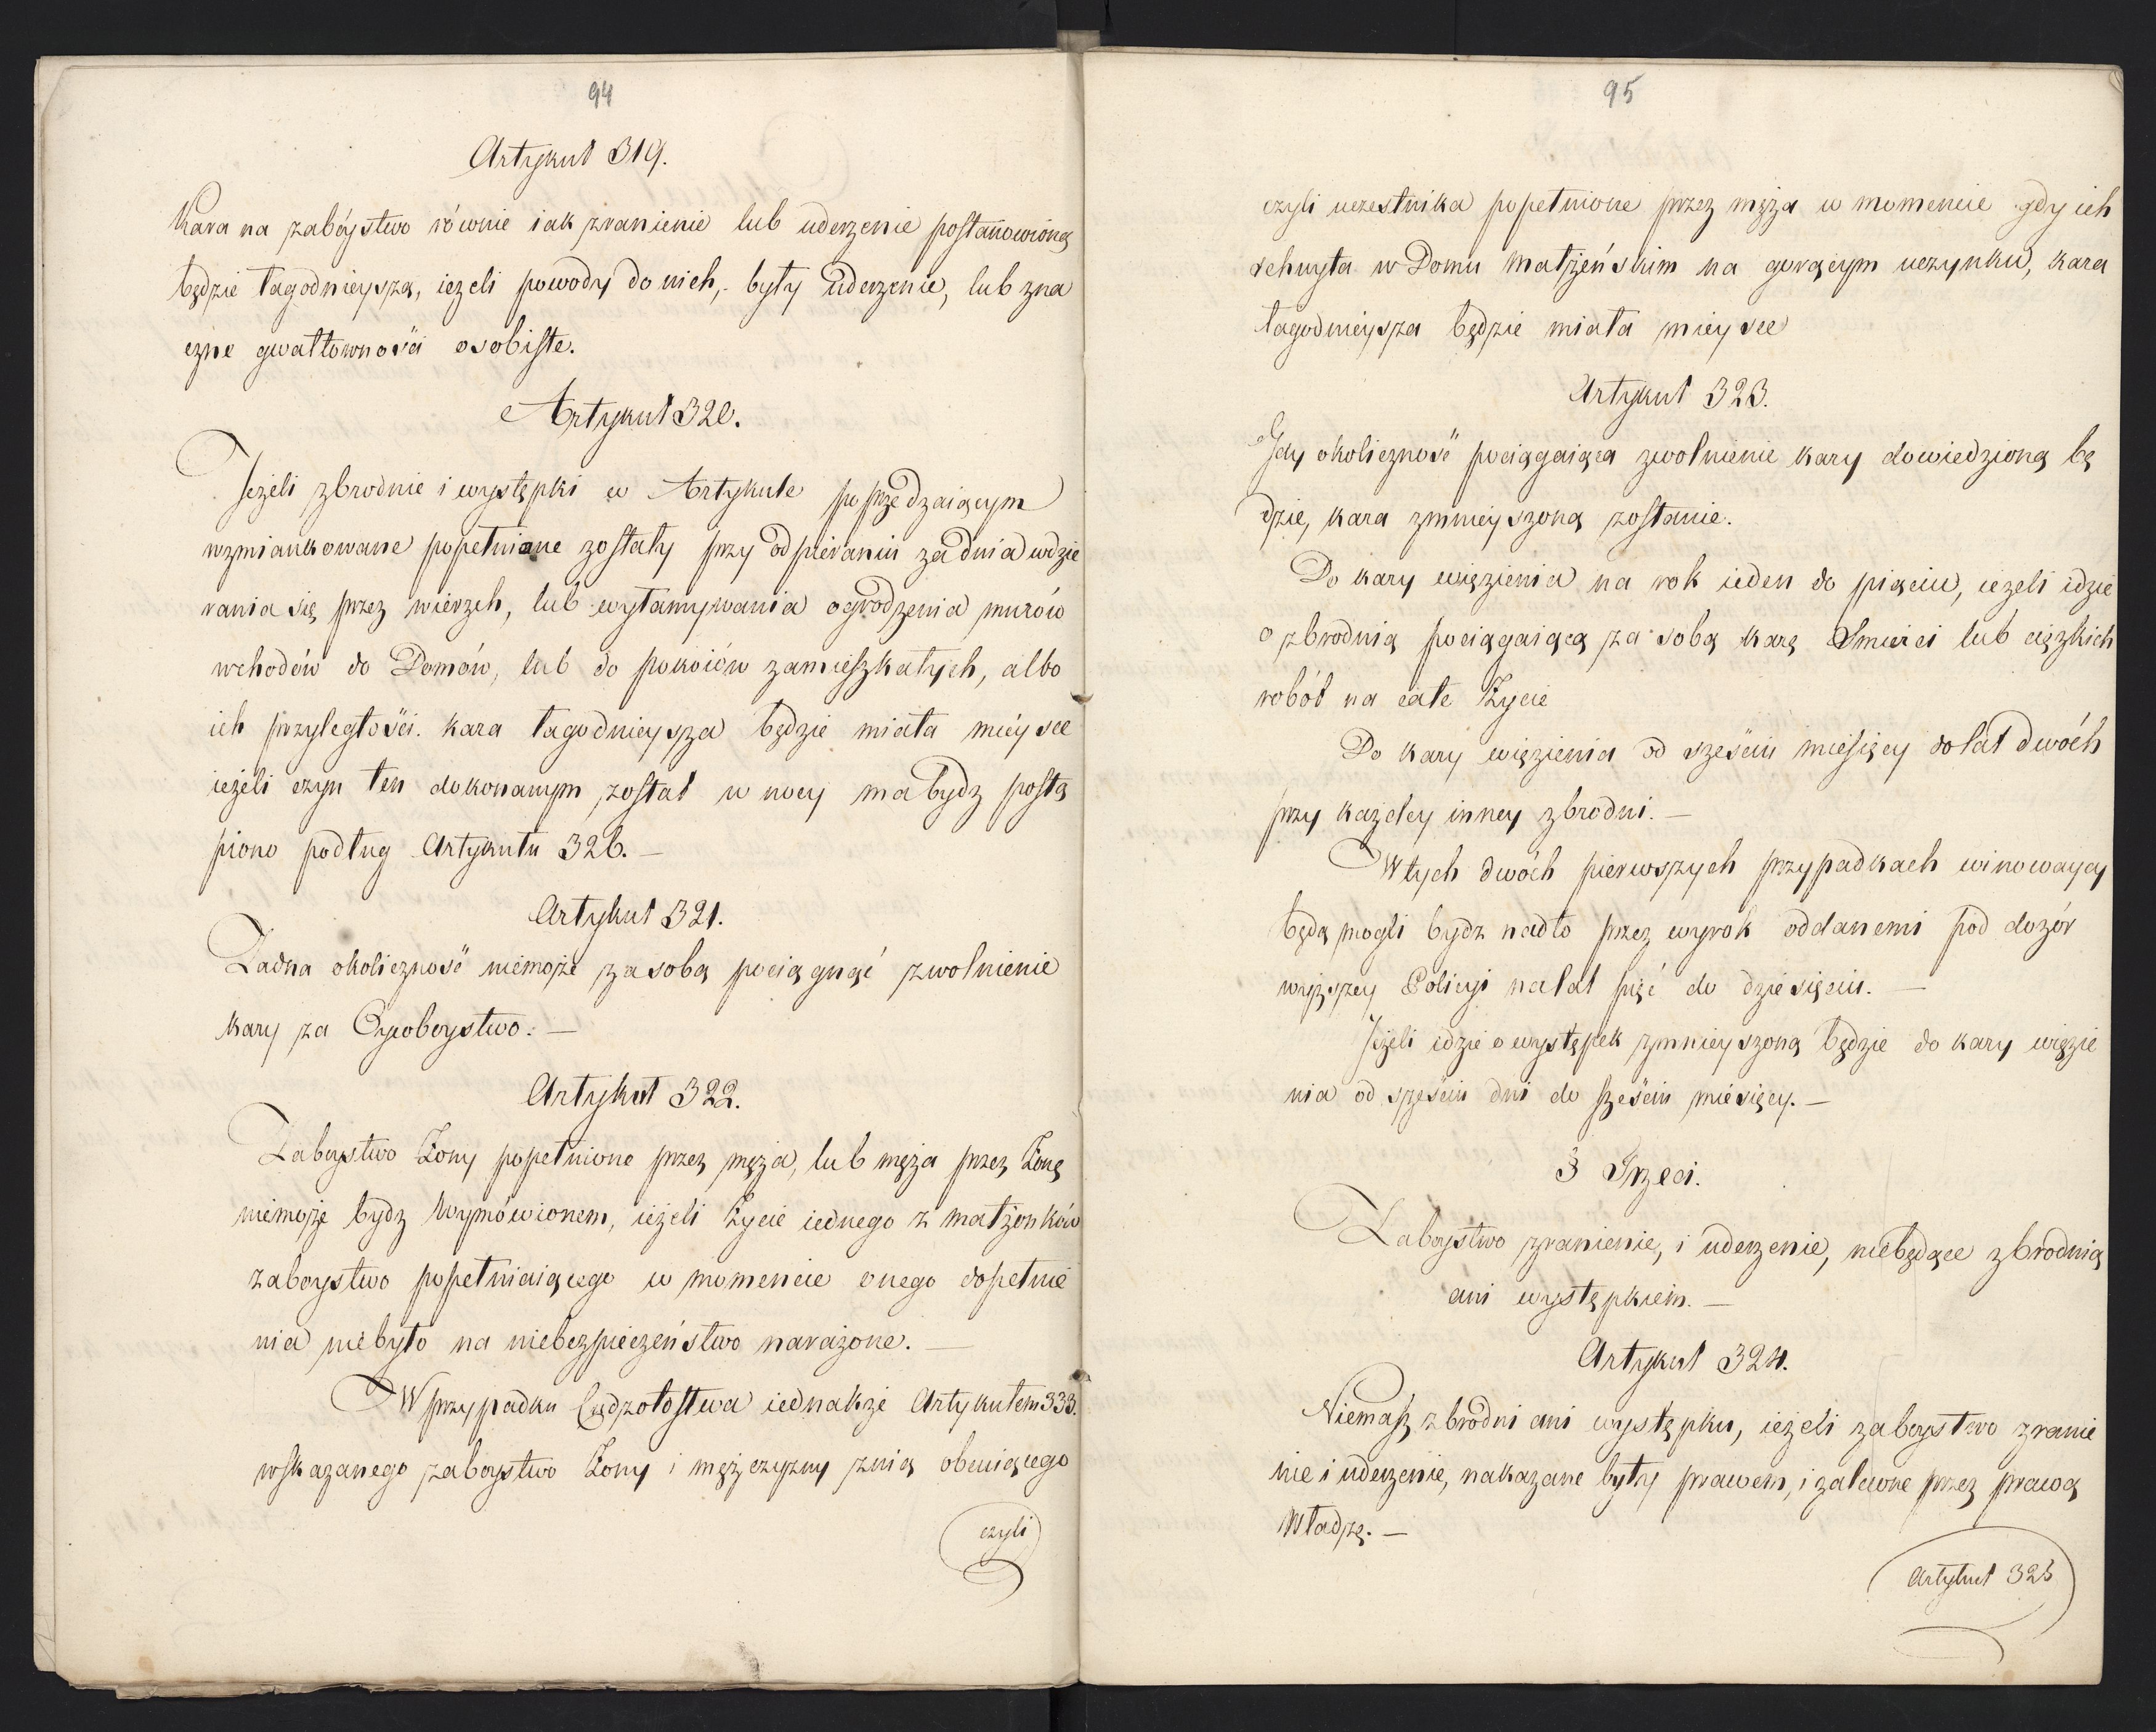 94
Artykuł 319.
Kara na zabóystwo równie iak zranienie lub uderzenie postanowioną
będzie łagodnieyszą, ieżeli powody do nich, były uderzenie, lub zna
czne gwałtowności osobiste.
Artykuł 320.
Jeżeli zbrodnie i występki w Artykule poprzedzaiącym
wzmiankowane popełnione zostały przy odpieraniu za dnia wdzie
rania się przez wierzch, lub wyłamywania ogrodzenia murów
wchodów do Domów, lub do pokoiów zamieszkałych, albo
ich przyległości. kara łagodnieysza będzie miała mieysce
ieżeli czyn ten dokonanym został w nocy ma bydz postą
piono podług Artykułu 326. —
Artykuł 321.
Żadna okoliczność niemoże za sobą pociągnąć zwolnienie
kary za Oycobóystwo. —
Artykuł 322.
Zabóystwo Żony popełnione przez męża, lub męża przez Żonę
niemoże bydz wymówionem, ieżeli życie iednego z małżonków
zabóystwo popełniaiącego w momencie onego dopełnie
nia niebyło na niebezpieczeństwo narażone. —
W przypadku Cudzołostwa iednakże Artykułem 333.
wskazanego zabóystwo Żony i mężczyzny z nią obcuiącego
czyli
95
czyli uczestnika popełnione przez męża w momencie gdy ich
schwyta w Domu Małżeńskim na gorącym uczynku, kara
łagodnieysza będzie miała mieysce
Artykuł 323.
Gdy okoliczność pociągaiąca zwolnienie kary dowiedzioną bę
dzie, kara zmnieyszoną zostanie.
Do kary więzienia na rok ieden do pięciu, ieżeli idzie
o zbrodnią pociągaiącą za sobą karę Śmierci lub ciężkich
robót na całe Życie
Do kary więzienia od sześciu miesięcy do lat dwóch
przy każdey inney zbrodni. —
W tych dwóch pierwszych przypadkach winowaycy
będą mogli bydz nadto przez wyrok oddanemi pod dozór
wyższey Policyi na lat pięć do dziesięciu. —
Jeżeli idzie o występek zmnieyszoną będzie do kary więzie
nia od sześciu dni do sześciu miesięcy. —
§ Trzeci.
Zabóystwo zranienie, i uderzenie, niebędące zbrodnią
ani występkiem. —
Artykuł 324.
Niemasz zbrodni ani występku, ieżeli zabóystwo zranie
nie i uderzenie, nakazane były prawem, i zalecone przez prawą
Władzę. —
Artykuł 325